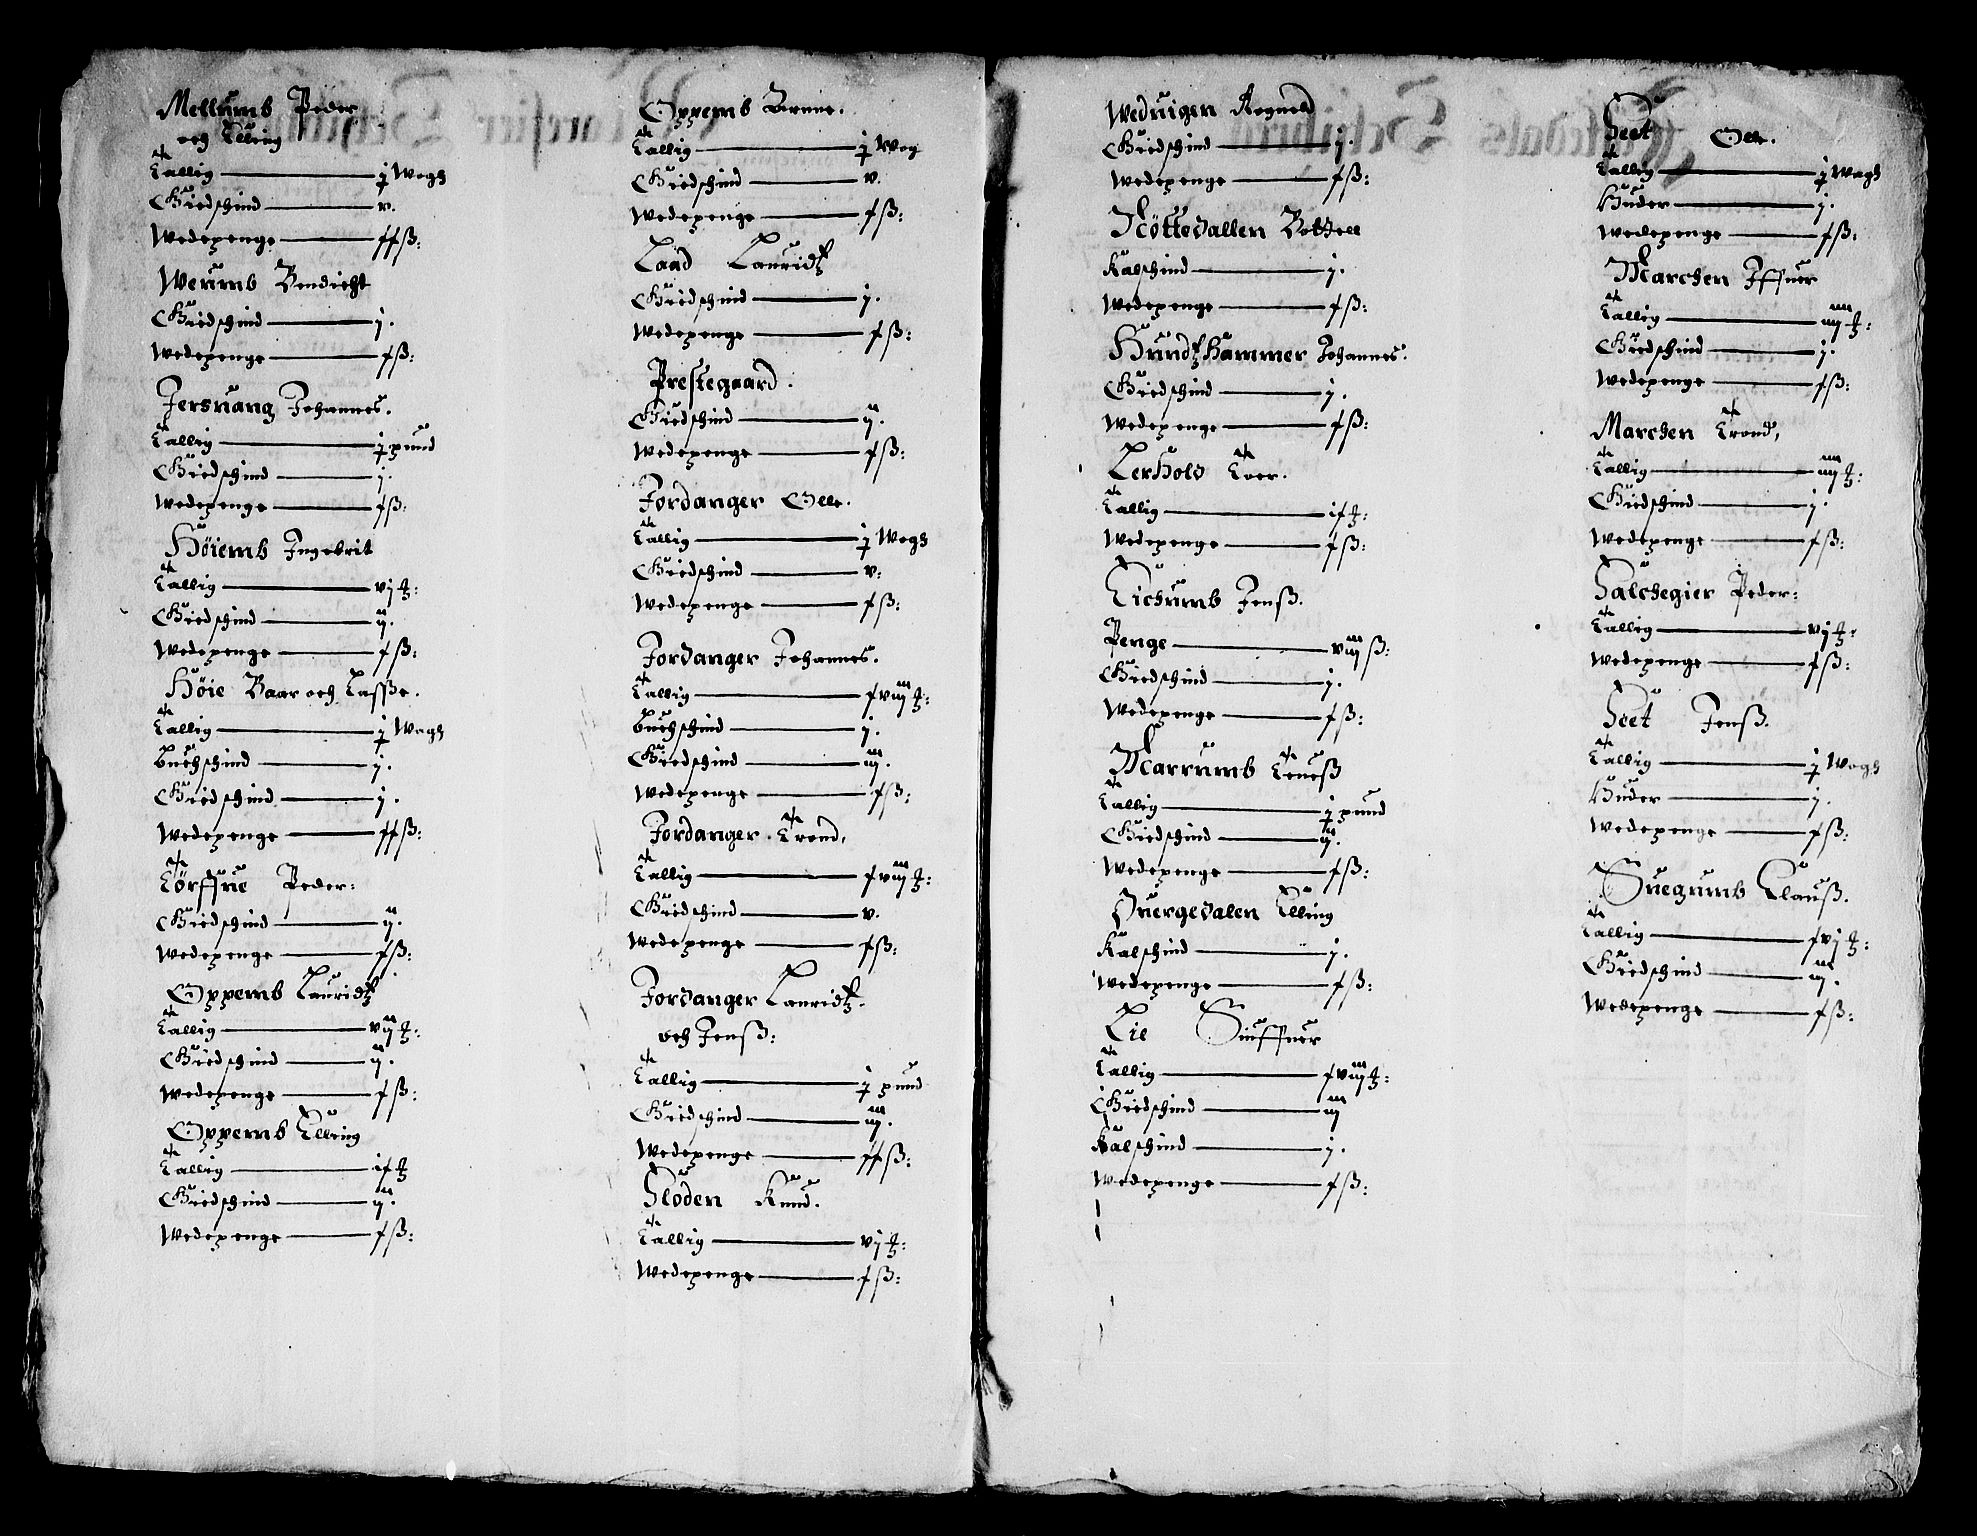 Mellumb Peder
och Elling
Tallig — j Wogh
Giedschind — v.
Wedepenge — ſſß:
Weumb Bendicht
Giedschind — j.
Wedepenge — ſß:
Jersuang Johannes.
Tallig — j pund
Giedschind — j.
Wedepenge — ſß:
Höiemb Ingebrit
Tallig — vj ℔:
Giedschind — ij.
Wedepenge — ſß:
Höie Baar och Lasse.
Tallig — j Wogh
Buchschind — j.
Giedschind — j.
Wedepenge — ſſß:
Törffue Peder:
Giedschind — ij.
Wedepenge — ſß:
Oppemb Lauridtz
Tallig — vij ℔:
Giedschind — ij.
Wedepenge — ſß:
Oppemb Elling
Tallig — iſ ℔
Giedschind — ij.
Wedepenge — ſß:
Oppemb
Tallig — j Wog
Giedschind — v.
Wedepenge — ſß:
Laad Lauridtz
Giedschind — j.
Wedepenge — ſß:
Prestegaard.
Giedschind — ij.
Wedepenge — ſß:
Jordanger Olle.
Tallig — j Wogh
Giedschind — v:
Wedepenge — ſß:
Jordanger Johannes.
Tallig — ſviij ℔:
Buchschind — j.
Giedschind — iij.
Wedepenge — ſß:
Jordanger Trond.
Tallig — ſviij ℔:
Giedschind — v.
Wedepenge — ſß:
Jordanger Lauridtz.
och Jenß:
Tallig — j pund
Giedschind — iij.
Wedepenge — ſſß:
Floden Knud.
Tallig — vj ℔:
Wedepenge — ſß:
Weduigen Rognald
Giedschind — j.
Wedepenge — ſß:
Nöttedallen Bottell
Kalschind — j.
Wedepenge — ſß:
Hundtzhammer Johannes.
Giedschind — j.
Wedepenge — ſß:
Lerhold Toer.
Tallig — iſ ℔:
Wedepenge — ſß:
Eichumb Jenß.
Penge — viij ß:
Giedschind — j.
Wedepenge — ſß:
Marrumb
Tallig — j pund
Giedschind — ij.
Wedepenge — ſß:
Quergedalen Elling
Kalschind — j.
Wedepenge — ſß:
Lie Siuffuer
Tallig — ſviij ℔:
Giedschind — iij
Kalschind — j.
Wedepenge — ſß:
Seet Olle.
Tallig — j Wogh
Huder — j.
Wedepenge — ſß:
Marchen Iffuer
Tallig — iiij ℔:
Giedschind — j.
Wedepenge — ſß:
Marchen Trond,
Tallig — iiij ℔:
Giedschind — j.
Wedepenge — ſß:
Salchegier Peder:
Tallig — vj ℔:
Wedepenge — ſß:
Seet Jenß.
Tallig — j Wogh
Huder — j.
Wedepenge — ſß:
Suegumb Clauß.
Tallig — ſvj ℔:
Giedschind — iij.
Wedepenge — ſß: